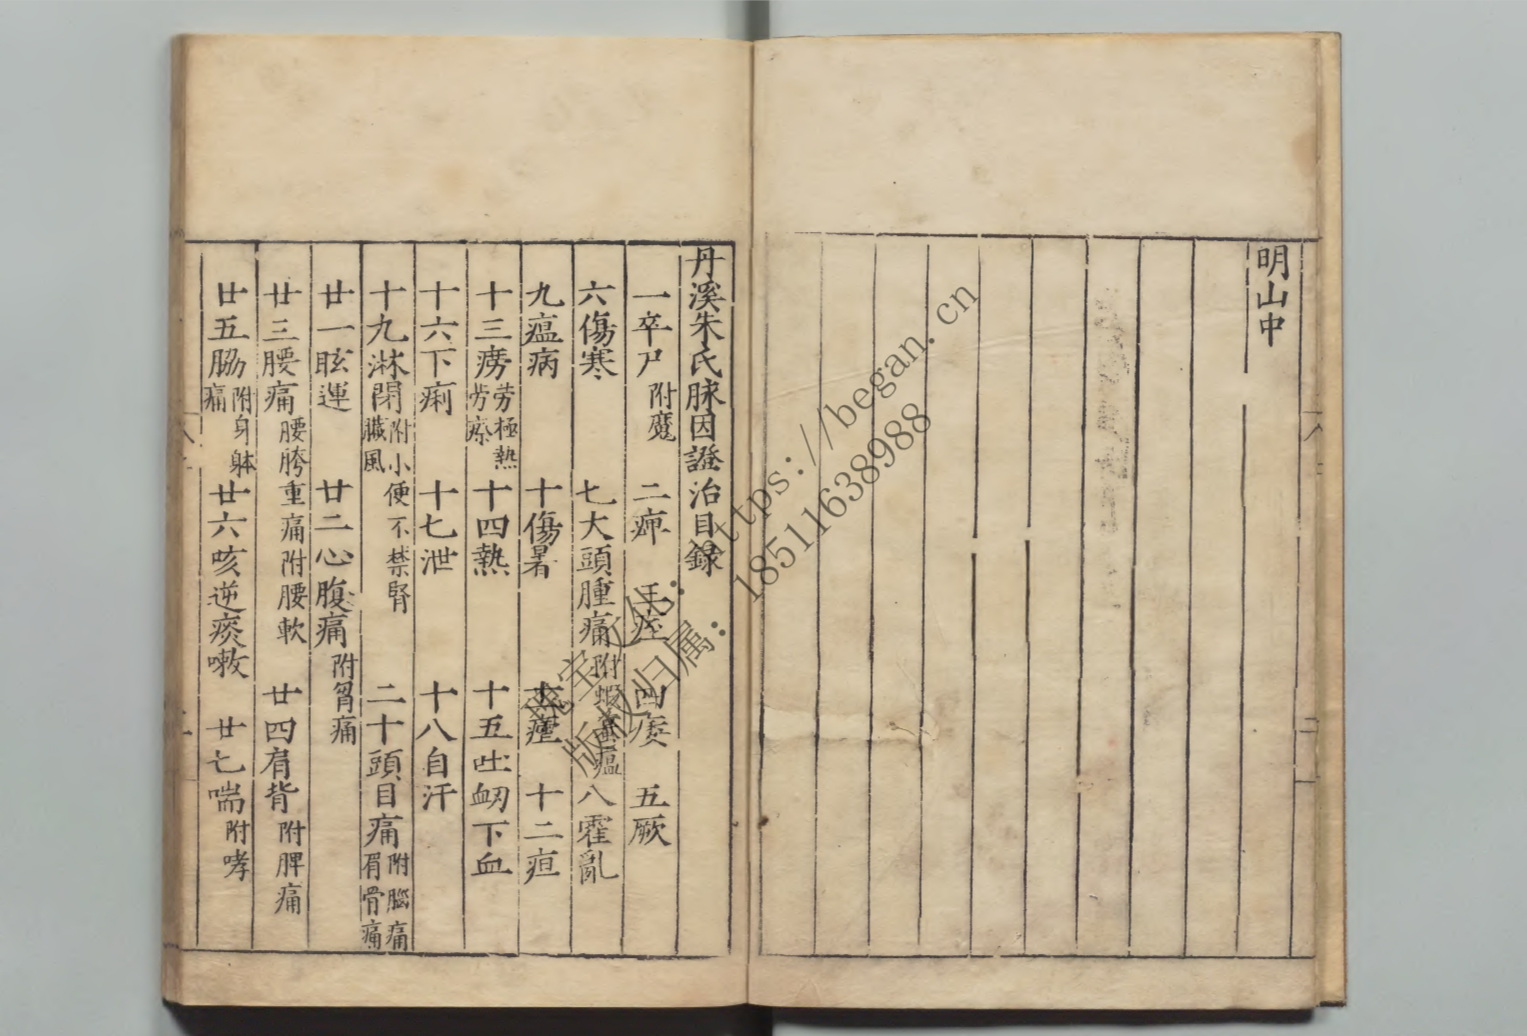 明山中
丹溪朱氏脉因證治目録
一卒尸 附魔 二痹 三痓 四痿 五厥
六傷寒 七大頭腫痛 附蝦蟇瘟 八霍亂
九瘟病 十傷暑 十一瘧 十二疸
十三癆 勞極熱勞瘵 十四熱 十五吐衂下血
十六下痢 十七泄 十八自汗
十九淋閉 附小便不禁腎臟風 二十頭目痛 附腦痛眉骨痛
廿一眩運 廿二心腹痛 附胷痛
廿三腰痛 腰胯重痛附腰軟 廿四肩背 附脾痛
廿五脇痛 附身躰 廿六咳逆痰嗽 廿七喘 附哮
https://began.cn
版权归属: 18511638988